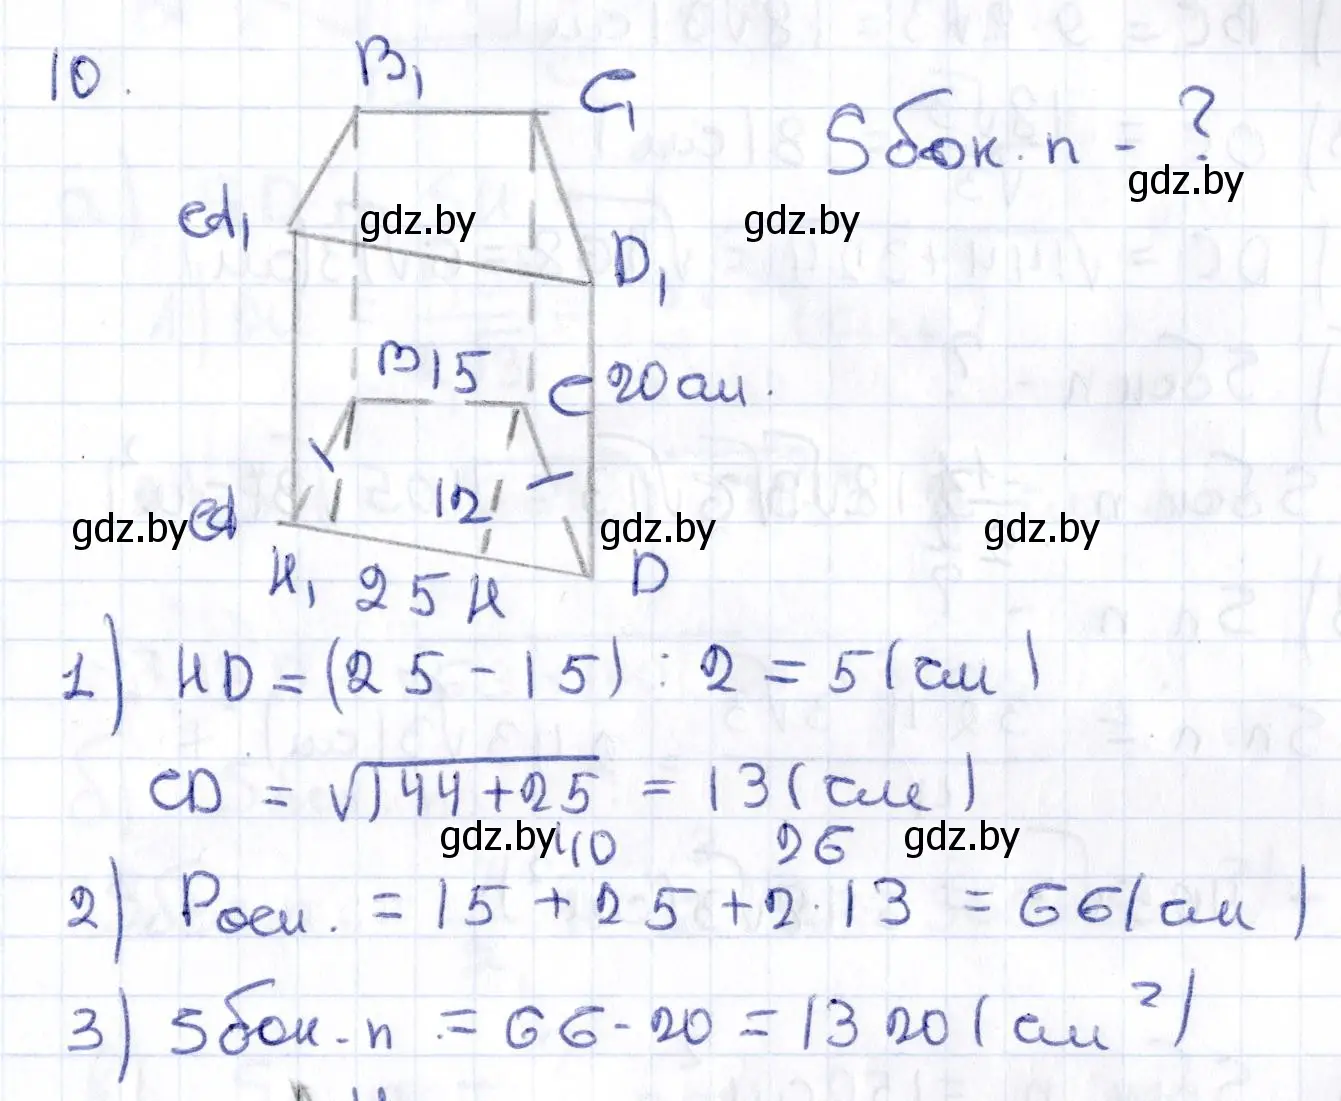 10.
B₁ C₁
S бок. п - ?
A₁ D₁
B 15 C 20 см.
12
A D
H₁ 25 H
1) HD = (25 - 15) : 2 = 5 (см)
CD = √144 + 25 = 13 (см)
40 26
2) Росн. = 15 + 25 + 2·13 = 66 (см)
3) S бок. п = 66·20 = 1320 (см²)
gdz.by
gdz.by
gdz.by
gdz.by
gdz.by
gdz.by
gdz.by
gdz.by